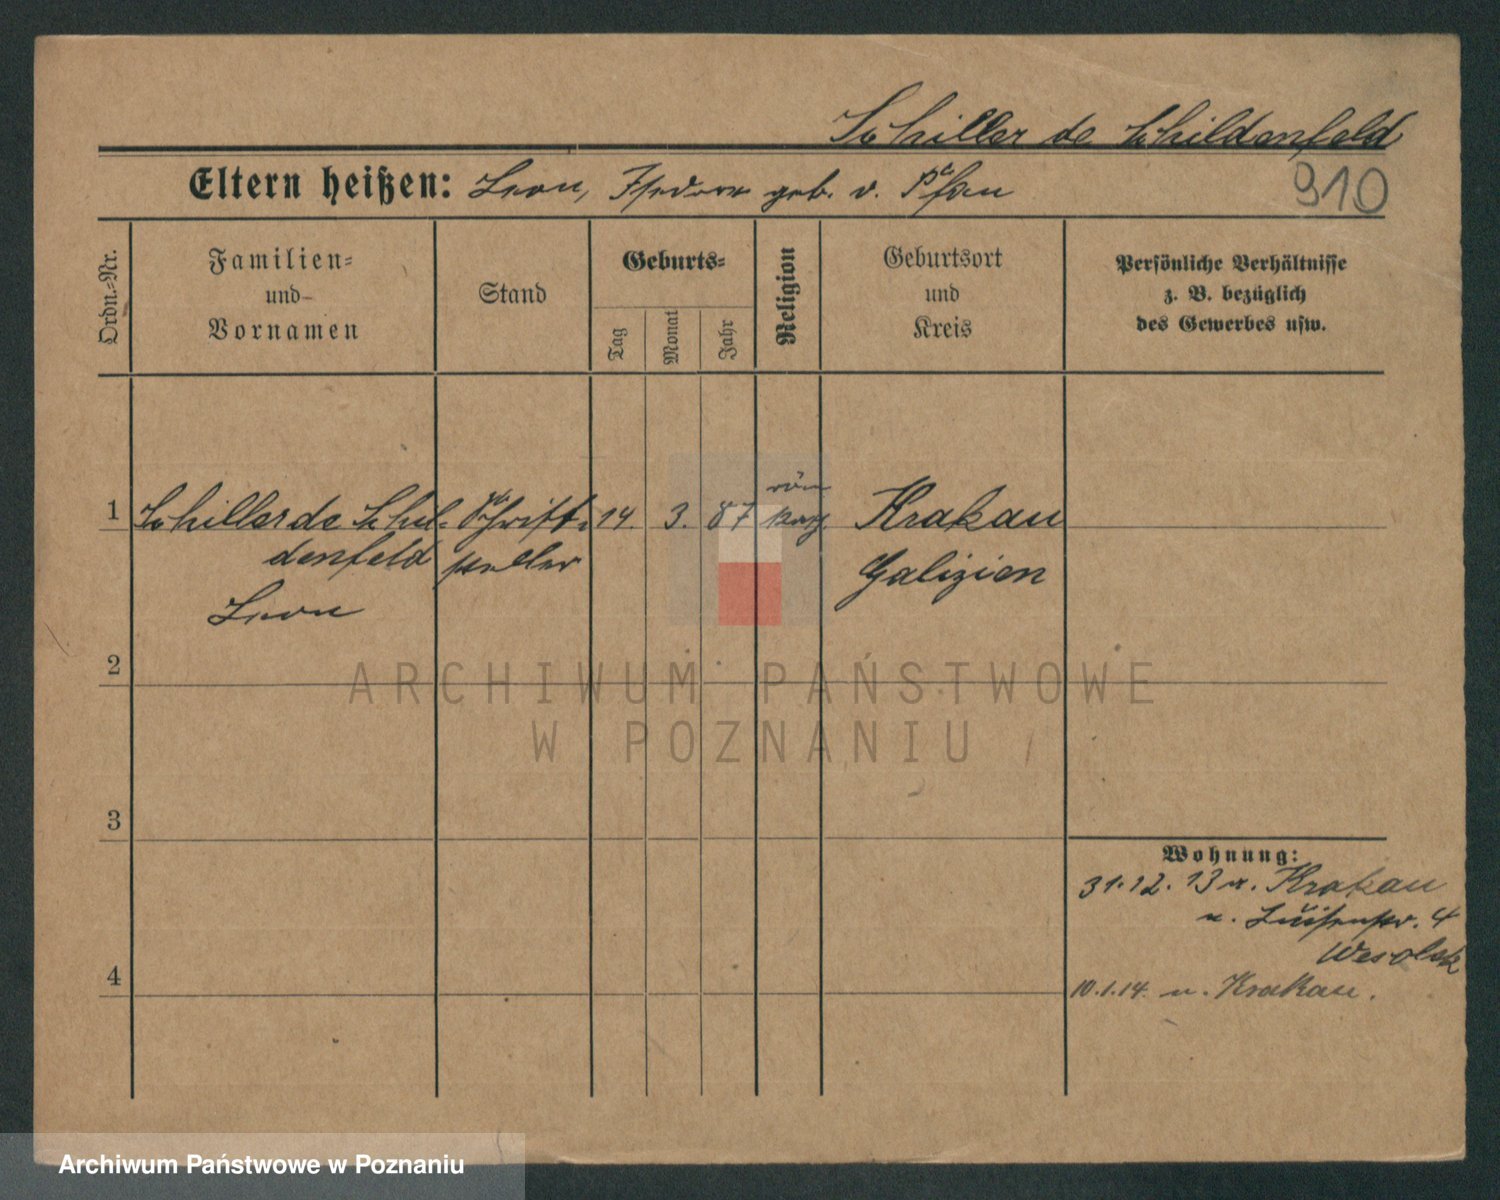 Schiller de Schildenfeld
Eltern heißen: Leon, Isidora geb. v. Pfau
910
Ordn.-Nr.
Familien-
und
Vornamen
Stand
Geburts-
Tag
Monat
Jahr
Religion
Geburtsort
und
Kreis
Persönliche Verhältnisse
z. B. bezüglich
des Gewerbes usw.
1 Schiller de Schil- Schrift- 14. 3. 87 röm kath. Krakau
denfeld steller Galizien
Leon
2
ARCHIWUM PAŃSTWOWE
W POZNANIU
3
Wohnung:
31.12.13 v. Krakau
n. Luisenstr. 4
Wesolek
4
10.1.14. n. Krakau.
Archiwum Państwowe w Poznaniu